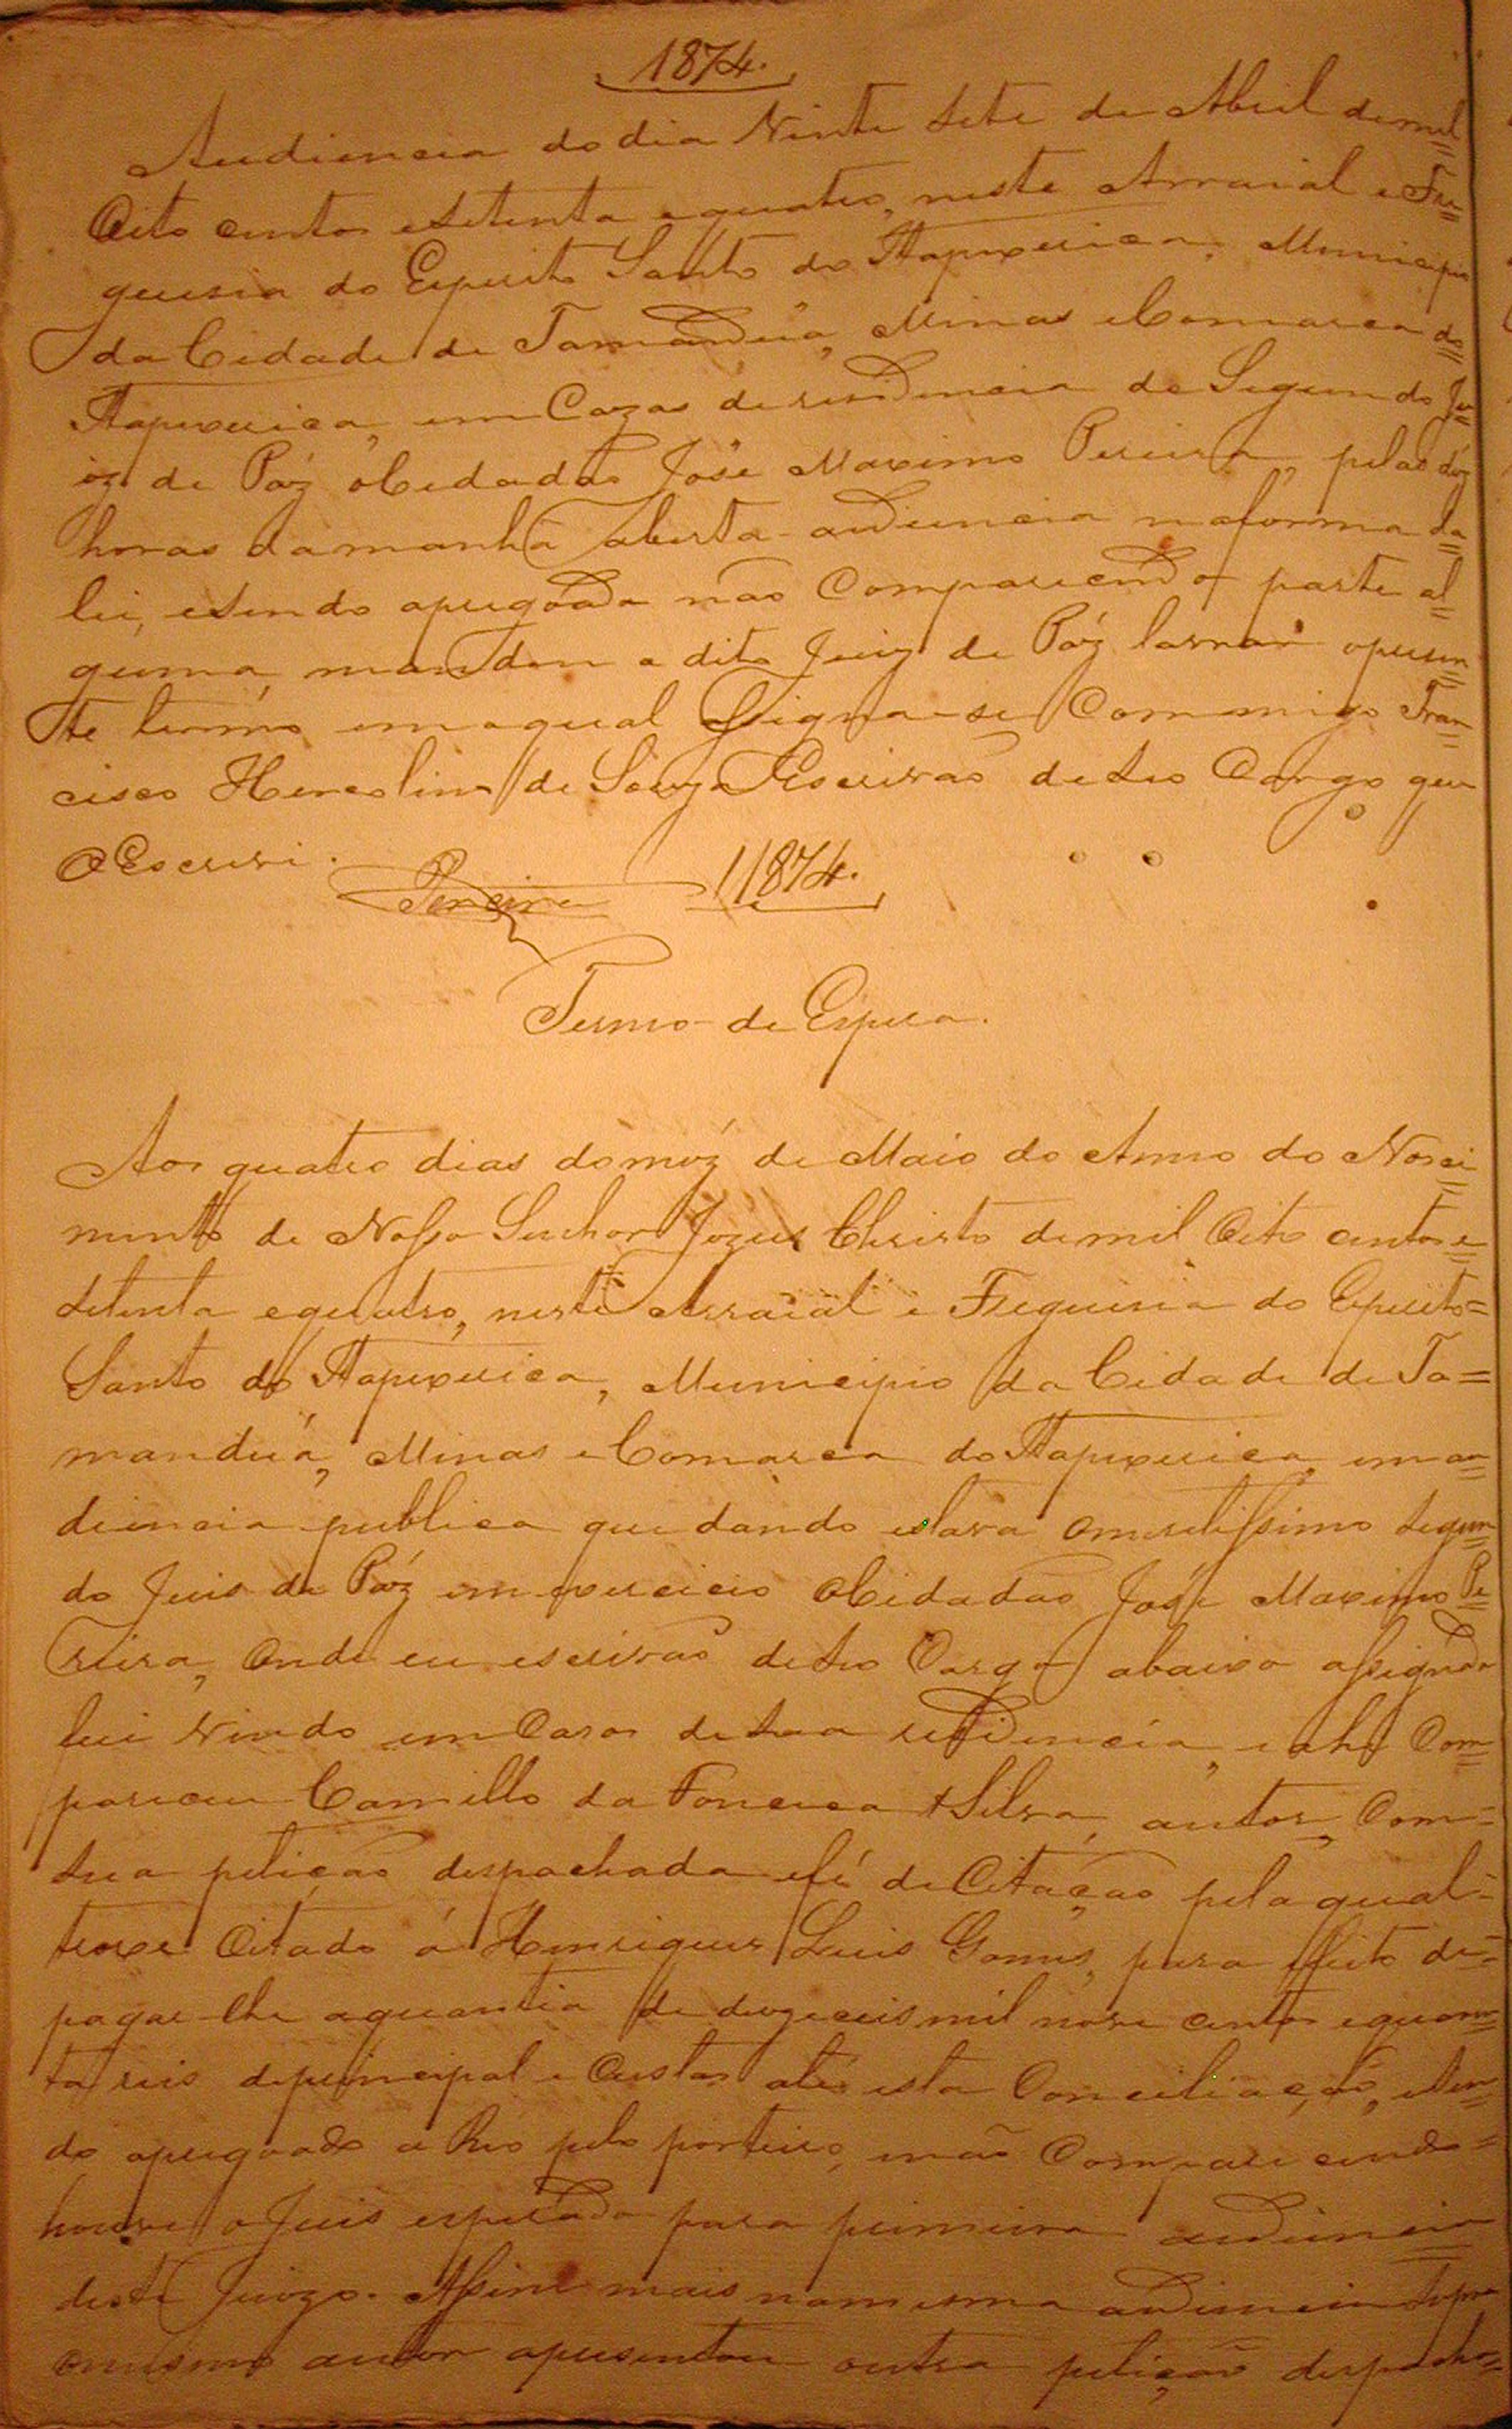 1874.
Audiencia do dia Vinte sete de Abril de mil
Oito centos e setenta e quatro, neste Arraial e Fre=
guesia do Espirito Santo do Itapexerica, Municipio
da Cidade de Tamanduá, Minas e Comarca do
Itapexerica, em Cazas de residencia do Segundo Ju=
iz de Páz o Cidadão José Maximo Pereira, pelas déz
horas da manhã aberta audiencia na forma da
lei, e sendo apregoada não Comparecendo parte al=
guma, mandou o dito Juiz de Páz lavrar o prezen=
te termo em o qual assigna-se Commigo Fran=
cisco Hercolino de Souza Escrivão de seo Cargo que
o Escrevi.
Pereira 1874.
Termo de Espera.
Aos quatro dias do mez de Maio do Anno do Nasci=
mento de Nosso Senhor Jezus Christo de mil Oito centos e
setenta e quatro, neste Arraial e Freguesia do Espirito=
Santo do Itapexerica, Municipio da Cidade de Ta=
manduá, Minas e Comarca do Itapexerica, em au=
diencia publica que dando estava o meretissimo segun=
do Juis de Páz em exercicio o Cidadão José Maximo Pe=
reira, Onde eu escrivão de seo Cargo abaixo assignado
fui Vindo em Casas de sua residencia, e ahi Com=
pareceu Camillo da Fonceca e Silva, autor, Com=
sua petição despachada e fé de Citação pela qual=
trouxe Citado á Henriques Luis Gomes, para effeito de=
pagar-lhe a quantia de dezeceis mil nove centos e quaren=
ta reis de principal e Custas até esta Conciliação, e sen=
do apregoado o Reo pelo porteiro, e não Comparecendo=
houve o Juis esperado para primeira audiencia
deste Juizo. Assim mais na mesma audiencia supra
o mesmo autor apresentou outra petição despacha=